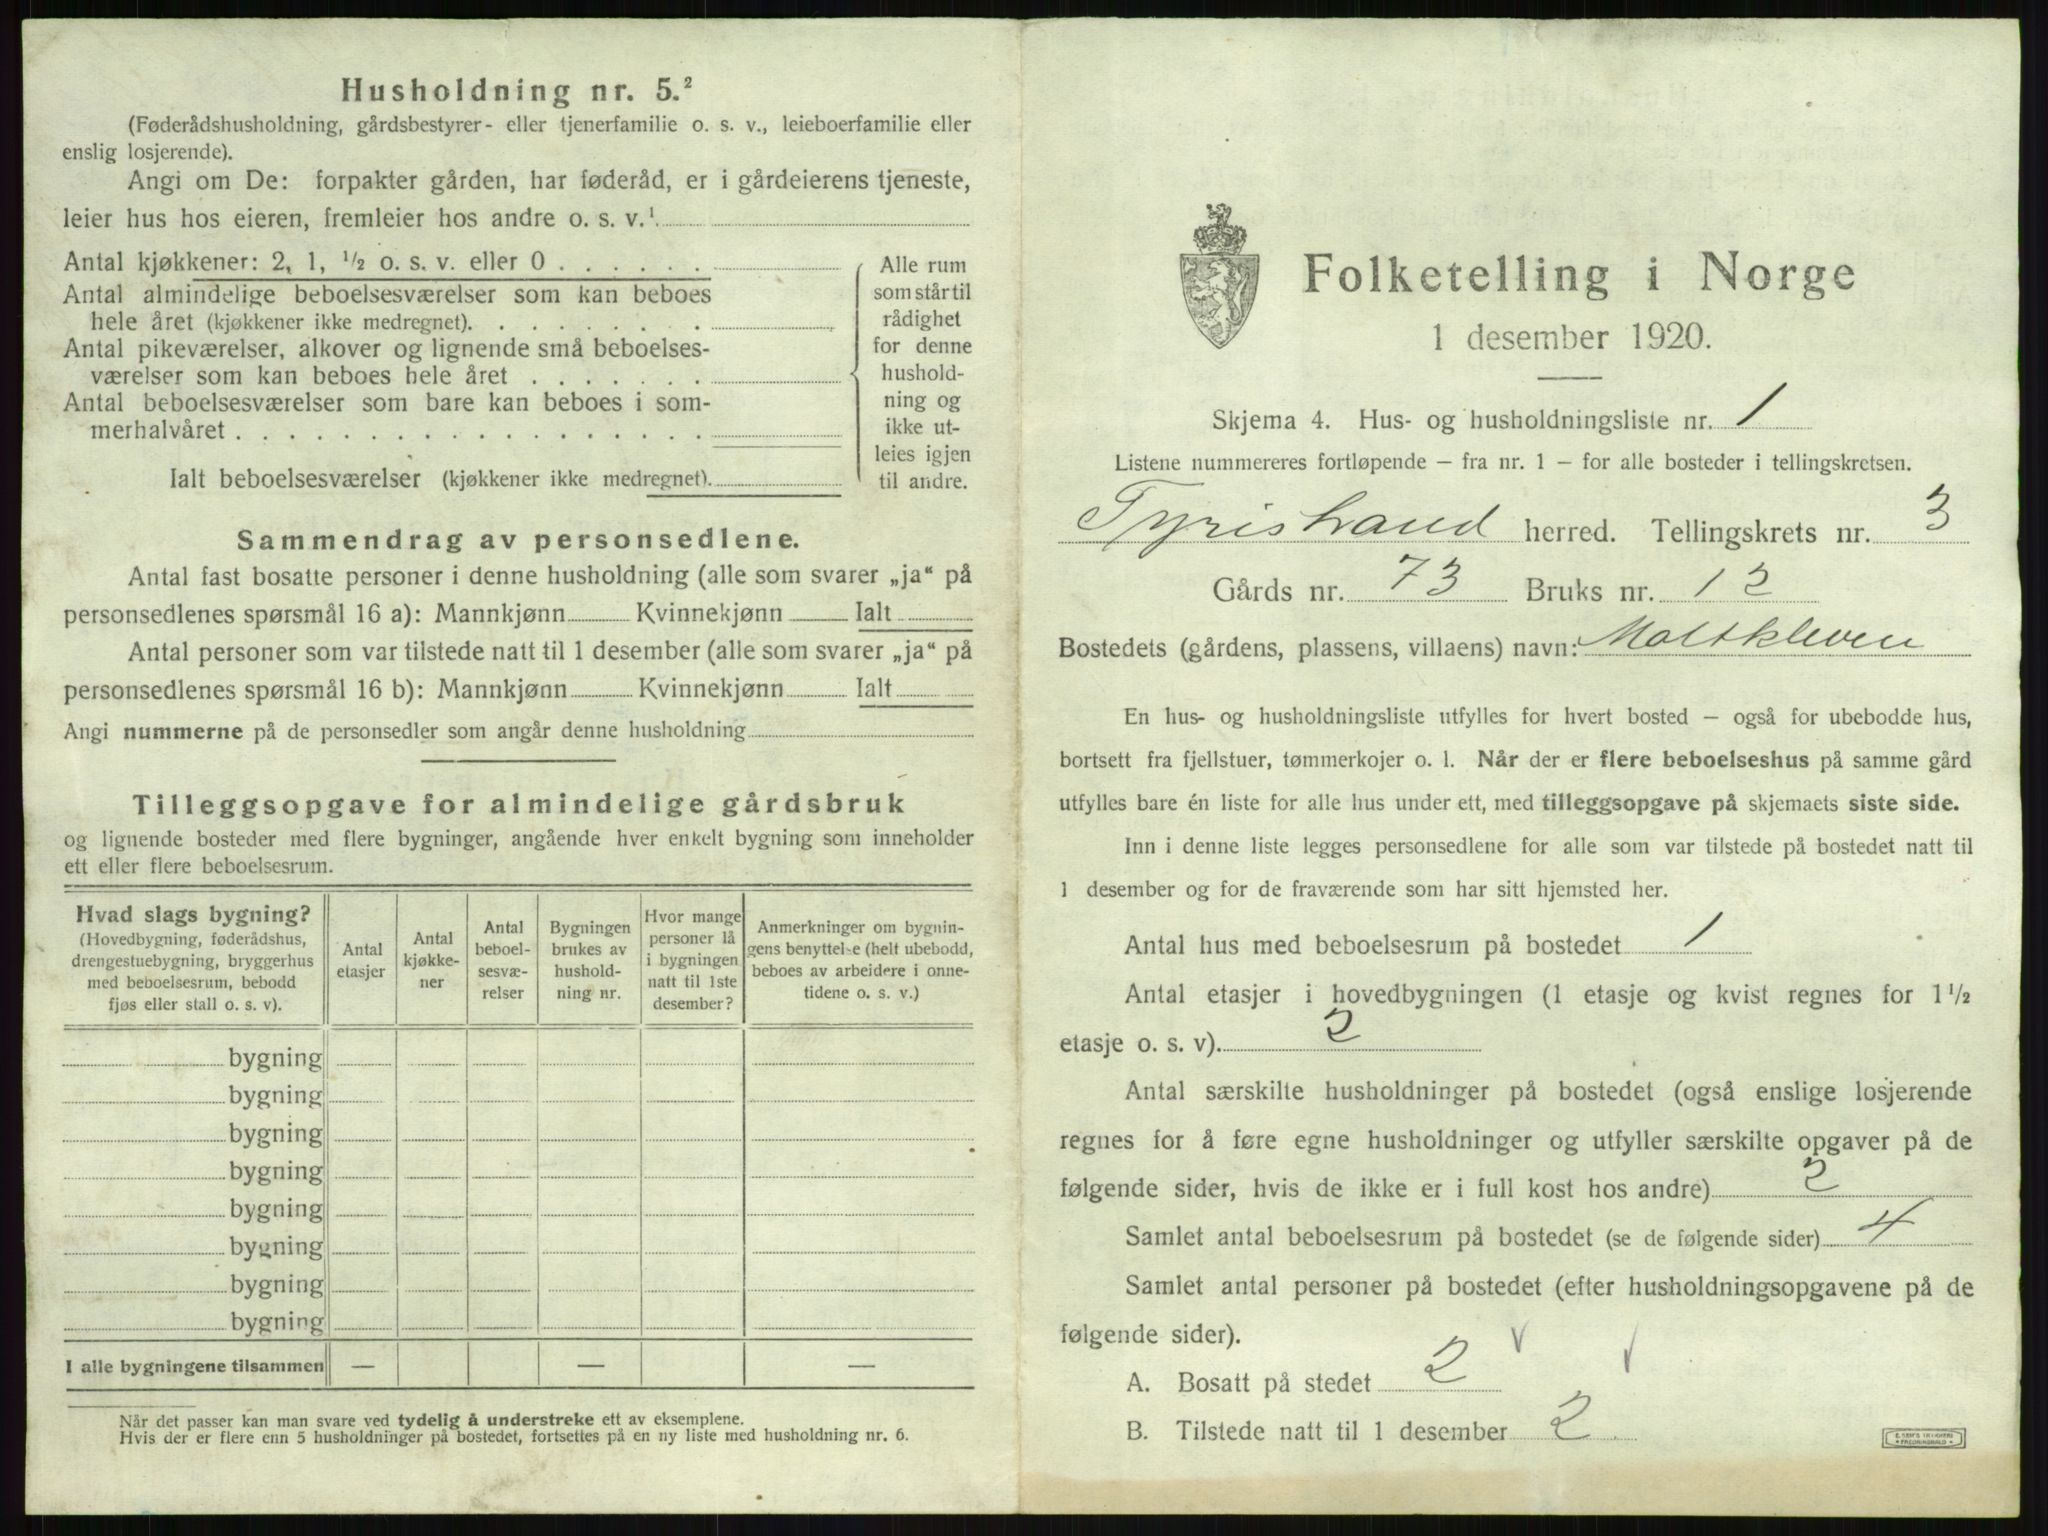 Husholdning nr. 5.²
(Føderådshusholdning, gårdsbestyrer- eller tjenerfamilie o. s. v., leieboerfamilie eller
enslig losjerende).
Angi om De: forpakter gården, har føderåd, er i gårdeierens tjeneste,
leier hus hos eieren, fremleier hos andre o. s. v.¹
Antal kjøkkener: 2, 1, ½ o. s. v. eller 0 . . . . . .
Antal almindelige beboelsesværelser som kan beboes
hele året (kjøkkener ikke medregnet). . . . . . . . .
Antal pikeværelser, alkover og lignende små beboelses-
værelser som kan beboes hele året . . . . . . .
Antal beboelsesværelser som bare kan beboes i som-
merhalvåret . . . . . . . . . . . . . . . . . .
Ialt beboelsesværelser (kjøkkener ikke medregnet).
Alle rum
som står til
rådighet
for denne
hushold-
ning og
ikke ut-
leies igjen
til andre.
Sammendrag av personsedlene.
Antal fast bosatte personer i denne husholdning (alle som svarer „ja“ på
personsedlenes spørsmål 16 a): Mannkjønn Kvinnekjønn Ialt
Antal personer som var tilstede natt til 1 desember (alle som svarer „ja“ på
personsedlenes spørsmål 16 b): Mannkjønn Kvinnekjønn Ialt
Angi nummerne på de personsedler som angår denne husholdning
Tilleggsopgave for almindelige gårdsbruk
og lignende bosteder med flere bygninger, angående hver enkelt bygning som inneholder
ett eller flere beboelsesrum.
Hvad slags bygning?
(Hovedbygning, føderådshus,
drengestuebygning, bryggerhus
med beboelsesrum, bebodd
fjøs eller stall o. s. v).
Antal
etasjer
Antal
kjøkke-
ner
Antal
beboel-
sesvæ-
relser
Bygningen
brukes av
hushold-
ning nr.
Hvor mange
personer lå
i bygningen
natt til 1ste
desember?
Anmerkninger om bygnin-
gens benyttelse (helt ubebodd,
beboes av arbeidere i onne-
tidene o. s. v.)
bygning
bygning
bygning
bygning
bygning
bygning
bygning
bygning
I alle bygningene tilsammen — — —
Når det passer kan man svare ved tydelig å understreke ett av eksemplene.
Hvis der er flere enn 5 husholdninger på bostedet, fortsettes på en ny liste med husholdning nr. 6.
Folketelling i Norge
1 desember 1920.
Skjema 4. Hus- og husholdningsliste nr. 1
Listene nummereres fortløpende – fra nr. 1 – for alle bosteder i tellingskretsen.
Tyristrand herred. Tellingskrets nr. 3
Gårds nr. 73 Bruks nr. 12
Bostedets (gårdens, plassens, villaens) navn: Moltkleven
En hus- og husholdningsliste utfylles for hvert bosted – også for ubebodde hus,
bortsett fra fjellstuer, tømmerkojer o. l. Når der er flere beboelseshus på samme gård
utfylles bare én liste for alle hus under ett, med tilleggsopgave på skjemaets siste side.
Inn i denne liste legges personsedlene for alle som var tilstede på bostedet natt til
1 desember og for de fraværende som har sitt hjemsted her.
Antal hus med beboelsesrum på bostedet 1
Antal etasjer i hovedbygningen (1 etasje og kvist regnes for 1½
etasje o. s. v). 2
Antal særskilte husholdninger på bostedet (også enslige losjerende
regnes for å føre egne husholdninger og utfyller særskilte opgaver på de
følgende sider, hvis de ikke er i full kost hos andre) 2
Samlet antal beboelsesrum på bostedet (se de følgende sider) 4
Samlet antal personer på bostedet (efter husholdningsopgavene på de
følgende sider).
A. Bosatt på stedet 2
B. Tilstede natt til 1 desember 2